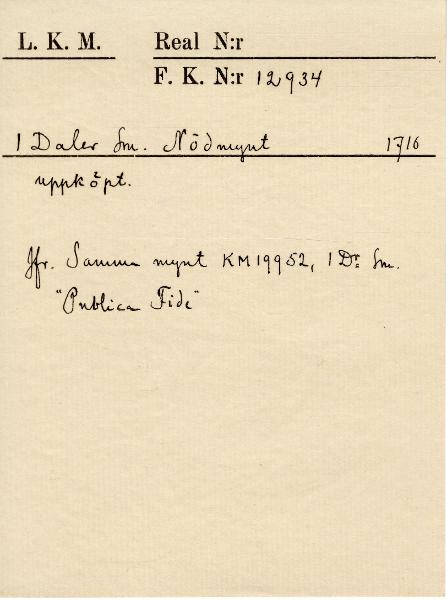 L. K. M. Real N:r
F. K. N:r 12934
1 Daler Sm. Nödmynt 1716
uppköpt.
Jfr. Samma mynt KM19952, 1 Dr. Sm.
"Publica Fide"